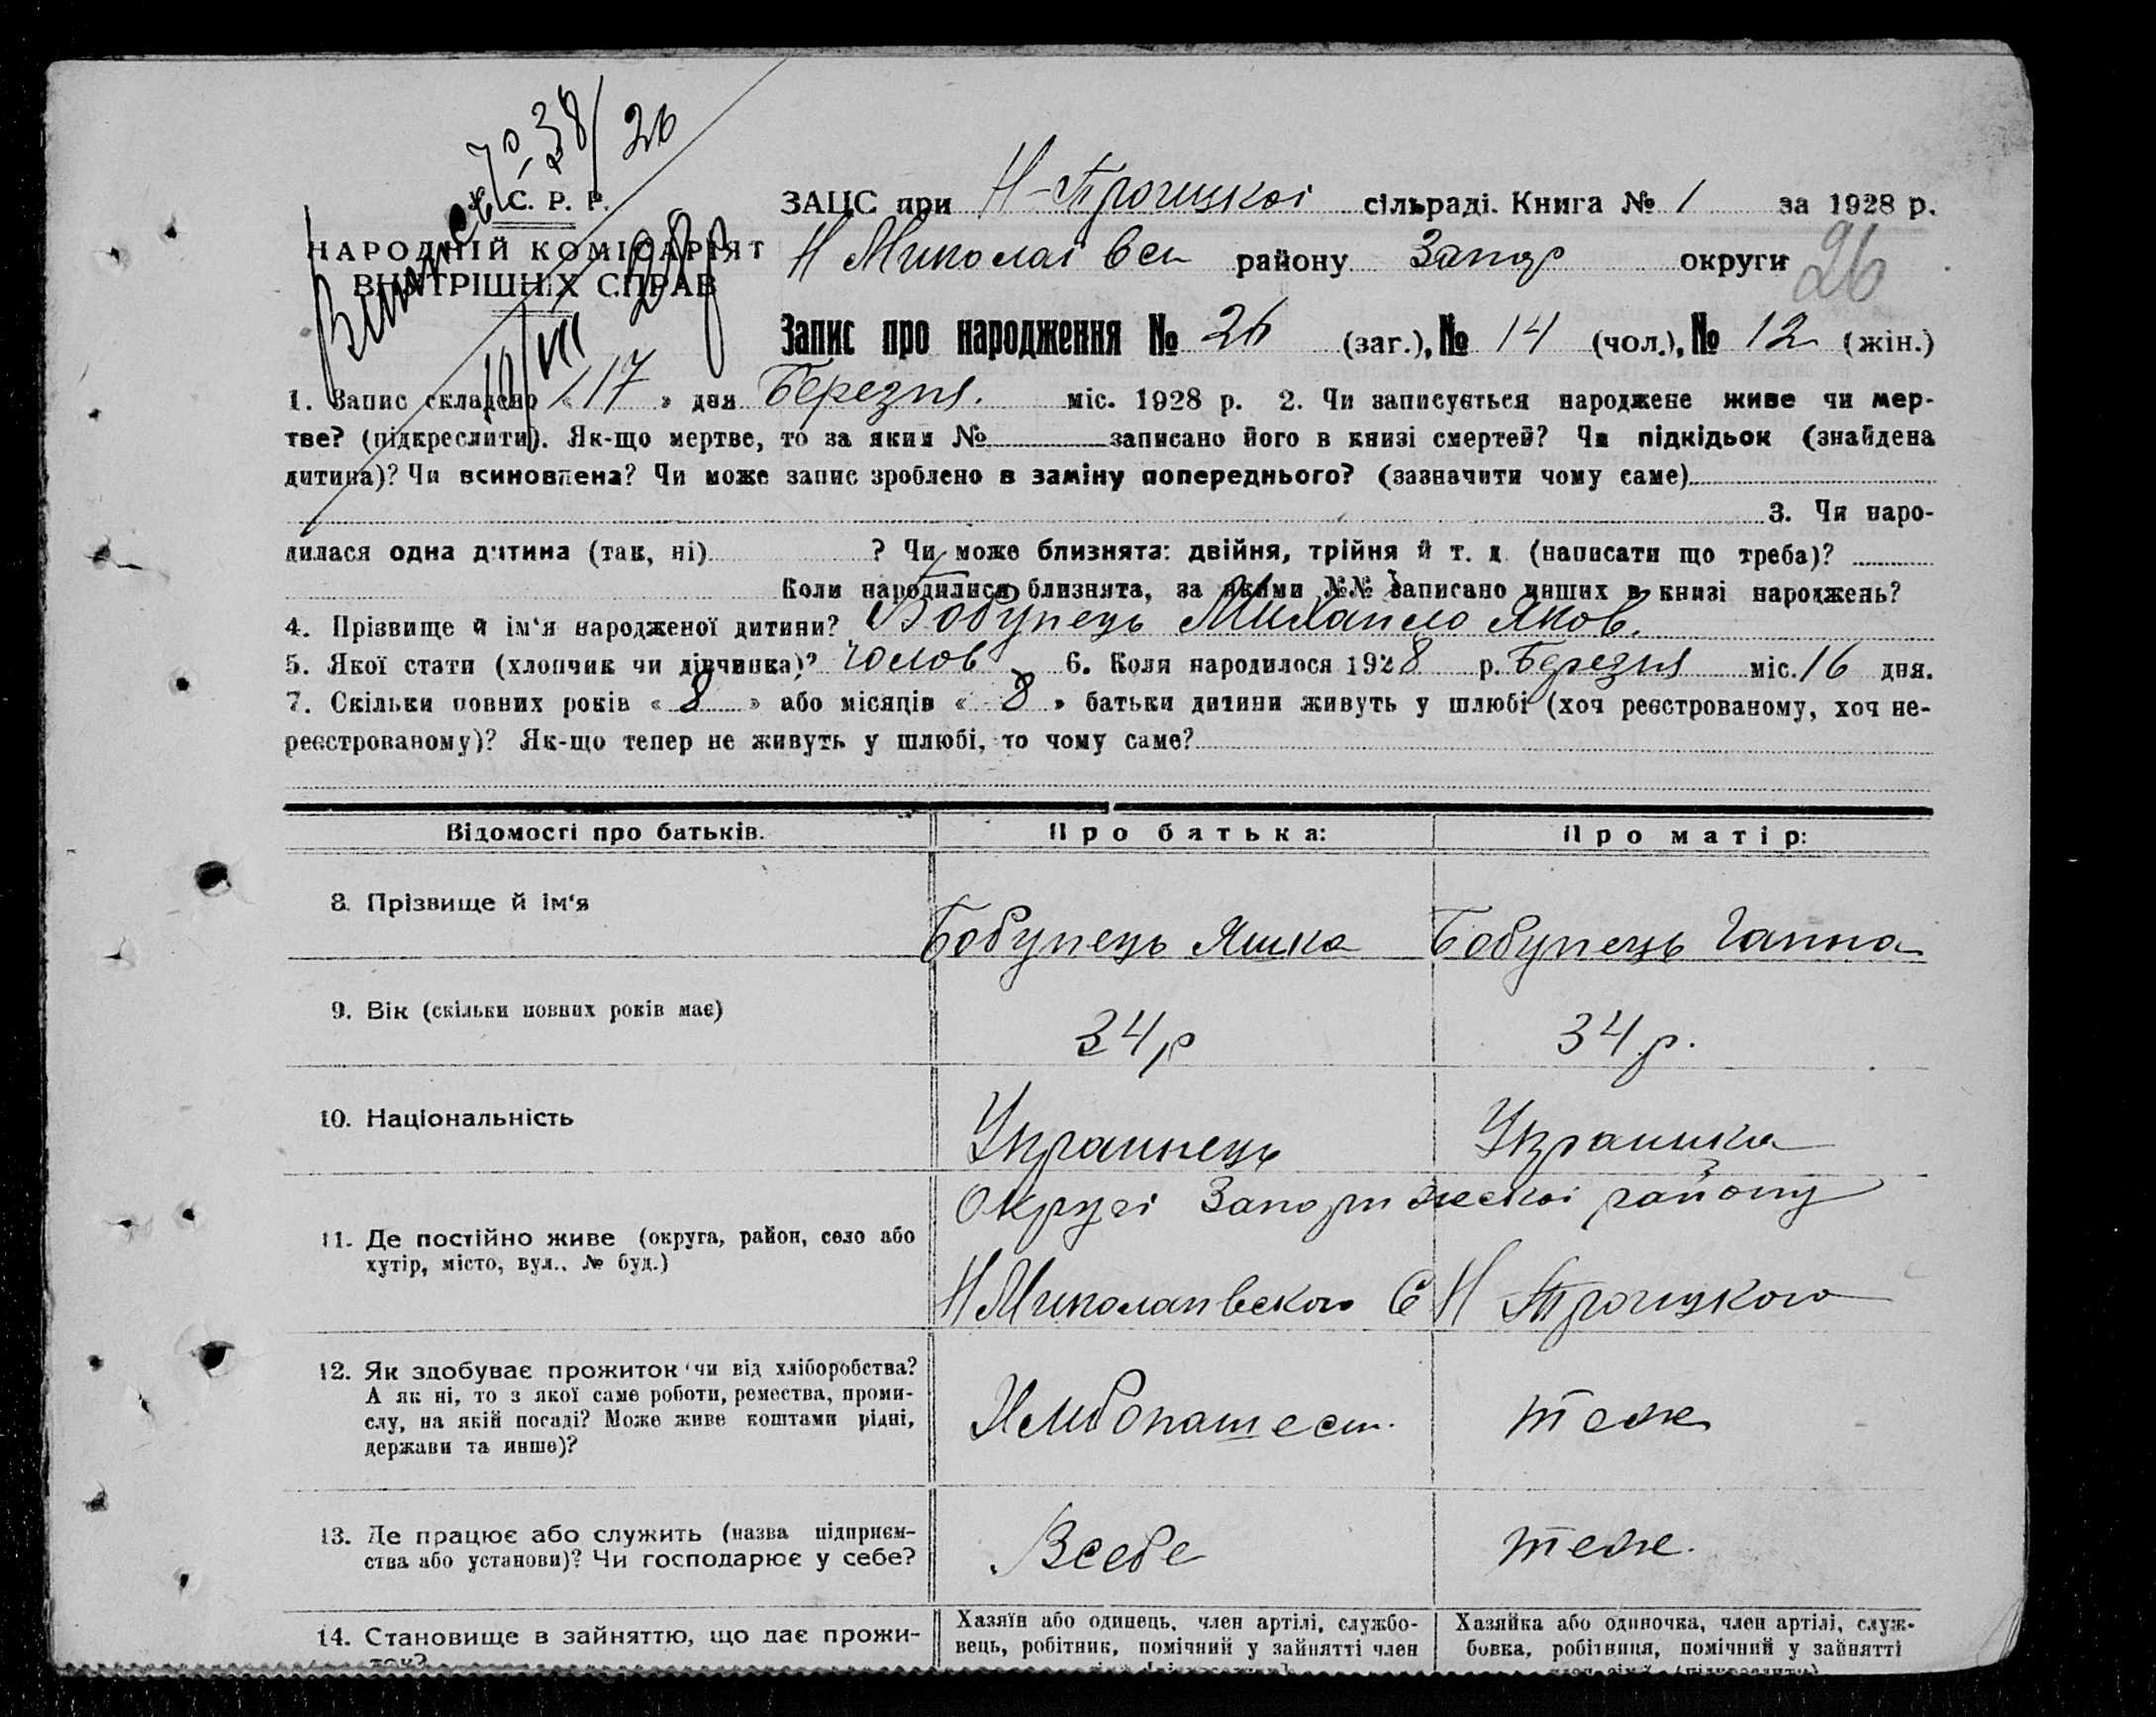 38/26
С. Р. Р.
НАРОДНІЙ КОМІСАРІЯТ
ВНУТРІШНІХ СПРАВ
ЗАЦС при Н-Троицкоі сільраді. Книга № 1 за 1928 р.
Н Миколаівск району Запор округи
26
Запис про народження № 26 (заг.), № 14 (чол.), № 12 (жін.)
1. Запис складено « 17 » дня Березня. міс. 1928 р. 2. Чи записується народжене живе чи мер-
тве? (підкреслити). Як-що мертве, то за яким № записано його в книзі смертей? Чи підкідьок (знайдена
дитина)? Чи всиновлена? Чи може запис зроблено в заміну попереднього? (зазначити чому саме)
3. Чи наро-
дилася одна дитина (так, ні) ? Чи може близнята: двійня, трійня й т. д. (написати що треба)?
Коли народилися близнята, за якими №№ записано инших в книзі народжень?
4. Прізвище й ім'я народженої дитини? Бобупець Михаило Яков.
5. Якої стати (хлопчик чи дівчинка)? чолов 6. Коли народилося 1928 р. Березня міс. 16 дня.
7. Скільки повних років « 8 » або місяців « 8 » батьки дитини живуть у шлюбі (хоч реєстрованому, хоч не-
реєстрованому)? Як-що тепер не живуть у шлюбі, то чому саме?
Відомості про батьків. Про батька: Про матір:
8. Прізвище й ім'я Бобупець Яшка Бобупець Ганна
9. Вік (скільки повних років має) 34 р 34 р.
10. Національність Украинець Украинка
11. Де постійно живе (округа, район, село або
хутір, місто, вул., № буд.)
Округі Запорижскоі району
Н Миколаивского С Н Троицкого
12. Як здобуває прожиток чи від хліборобства?
А як ні, то з якої саме роботи, ремества, проми-
слу, на якій посаді? Може живе коштами рідні,
держави та инше)?
Хлибопашест. теж
13. Де працює або служить (назва підприєм-
ства або установи)? Чи господарює у себе?
Всебе теже.
14. Становище в зайняттю, що дає прожи-
ток?
Хазяїн або одинець, член артілі, службо-
вець, робітник, помічний у зайнятті член
Хазяйка або одиночка, член артілі, служ-
бовка, робітниця, помічний у зайнятті